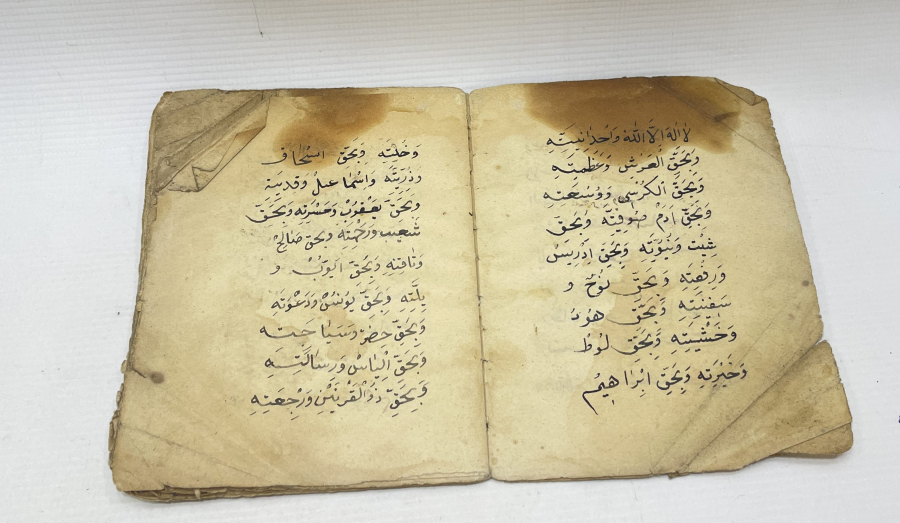 لا اله الا الله وَاحْدَانِيَتِه
وَبِحَقِّ الْعَرْشِ وَعَظَمَتِه
وَبِحَقِّ الْكُرْسِي وَوُسْعَتِه
وَبِحَقِّ ادَمْ صُوفِيَّتِه وَبِحَقِّ
شِيْث وَنُبُوَّتِه وَبِحَقِّ اِدْرِيسْ
وَرِفْعَتِه وَبِحَقِّ نُوحٌ و
سَفِينَتِه وَبِحَقِّ هُودُ
وَخَشْيَتِه وَبِحَقِّ لُوطُ
وَخَيْرَتِه وَبِحَقِّ اِبْرَاهِيمُ
وَخُلَّتِه وَبِحَقِّ اسْحَاق
وَذُرِّيَتِه وَاسْمَاعِيلُ وَفِدْيَتِه
وَبِحَقِّ يَعْقُوبْ وَحَسْرَتِه وَبِحَقِّ
شُعَيب وَرَحْمَتِه وبحق صَالِحْ
وَنَاقَتِه وَبِحَقِّ اَيُّوبُ و
بِلِيَّتِه وَبِحَقِّ يُونُسْ وَدَعْوَتِه
وَبِحَقِّ خِضِرْ وَسَيَاحَتِه
وَبِحَقِّ اِلْيَاسْ وَرِسَالَتِه
وَبِحَقِّ ذُالْقَرْنَيْنِ وَرَجْعَتِه